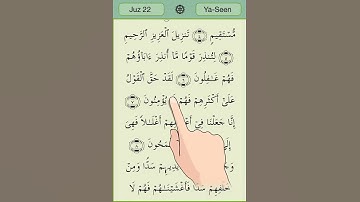 Juz 22 Ya-Seen
مُّسْتَقِيمٍ ﴿٤﴾ تَنزِيلَ ٱلْعَزِيزِ ٱلرَّحِيمِ
﴿٥﴾ لِتُنذِرَ قَوْمًا مَّآ أُنذِرَ ءَابَآؤُهُمْ
فَهُمْ غَـٰفِلُونَ ﴿٦﴾ لَقَدْ حَقَّ ٱلْقَوْلُ
عَلَىٰٓ أَكْثَرِهِمْ فَهُمْ يُؤْمِنُونَ ﴿٧﴾
إِنَّا جَعَلْنَا فِىٓ أَغْلَـٰلًا فَهِىَ
سَدًّا وَمِنْ
خَلْفِهِمْ سَدًّا فَأَغْشَيْنَـٰهُمْ فَهُمْ لَا